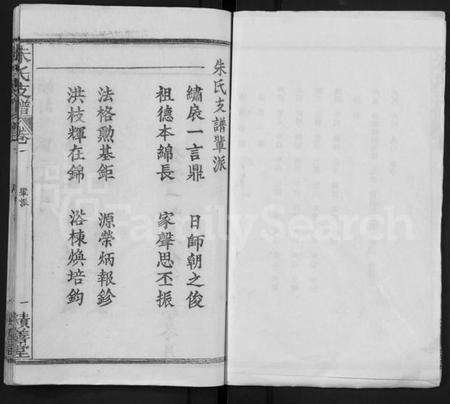 朱氏支譜輩派
繡扆一言鼎 日師朝之俊
祖德本綿長 家聲思丕振
法格勲基鉅 源榮炳報鉁
洪枝輝在錦 浴棟煥培鈞
朱氏支譜 卷一 輩派 一 積善堂
FamilySearch